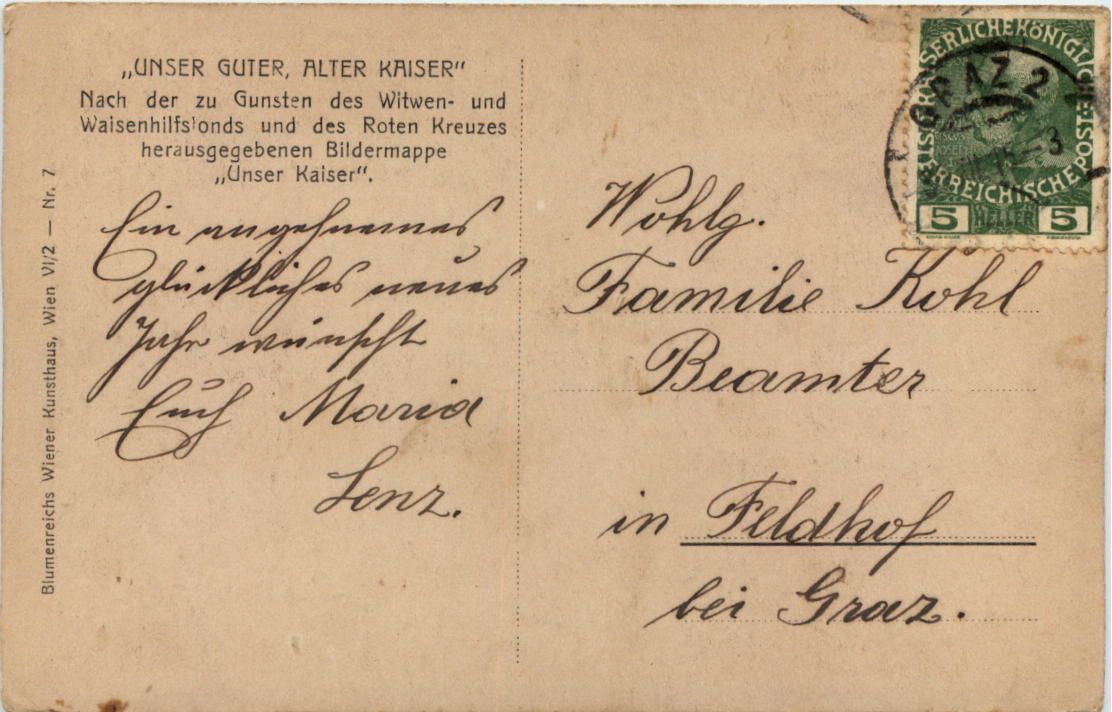 „UNSER GUTER, ALTER KAISER"
Nach der zu Gunsten des Witwen- und
Waisenhilfsfonds und des Roten Kreuzes
herausgegebenen Bildermappe
„Unser Kaiser".
Ein angenehmes
glückliches neues
Jahr wünscht
Euch Maria
Lenz.
Blumenreichs Wiener Kunsthaus, Wien VI/2 — Nr. 7
KAISERLICHE KÖNIGLICHE
ÖSTERREICHISCHE POST
5 HELLER 5
GRAZ 2
Wohlg.
Familie Kohl
Beamter
in Feldhof
bei Graz.